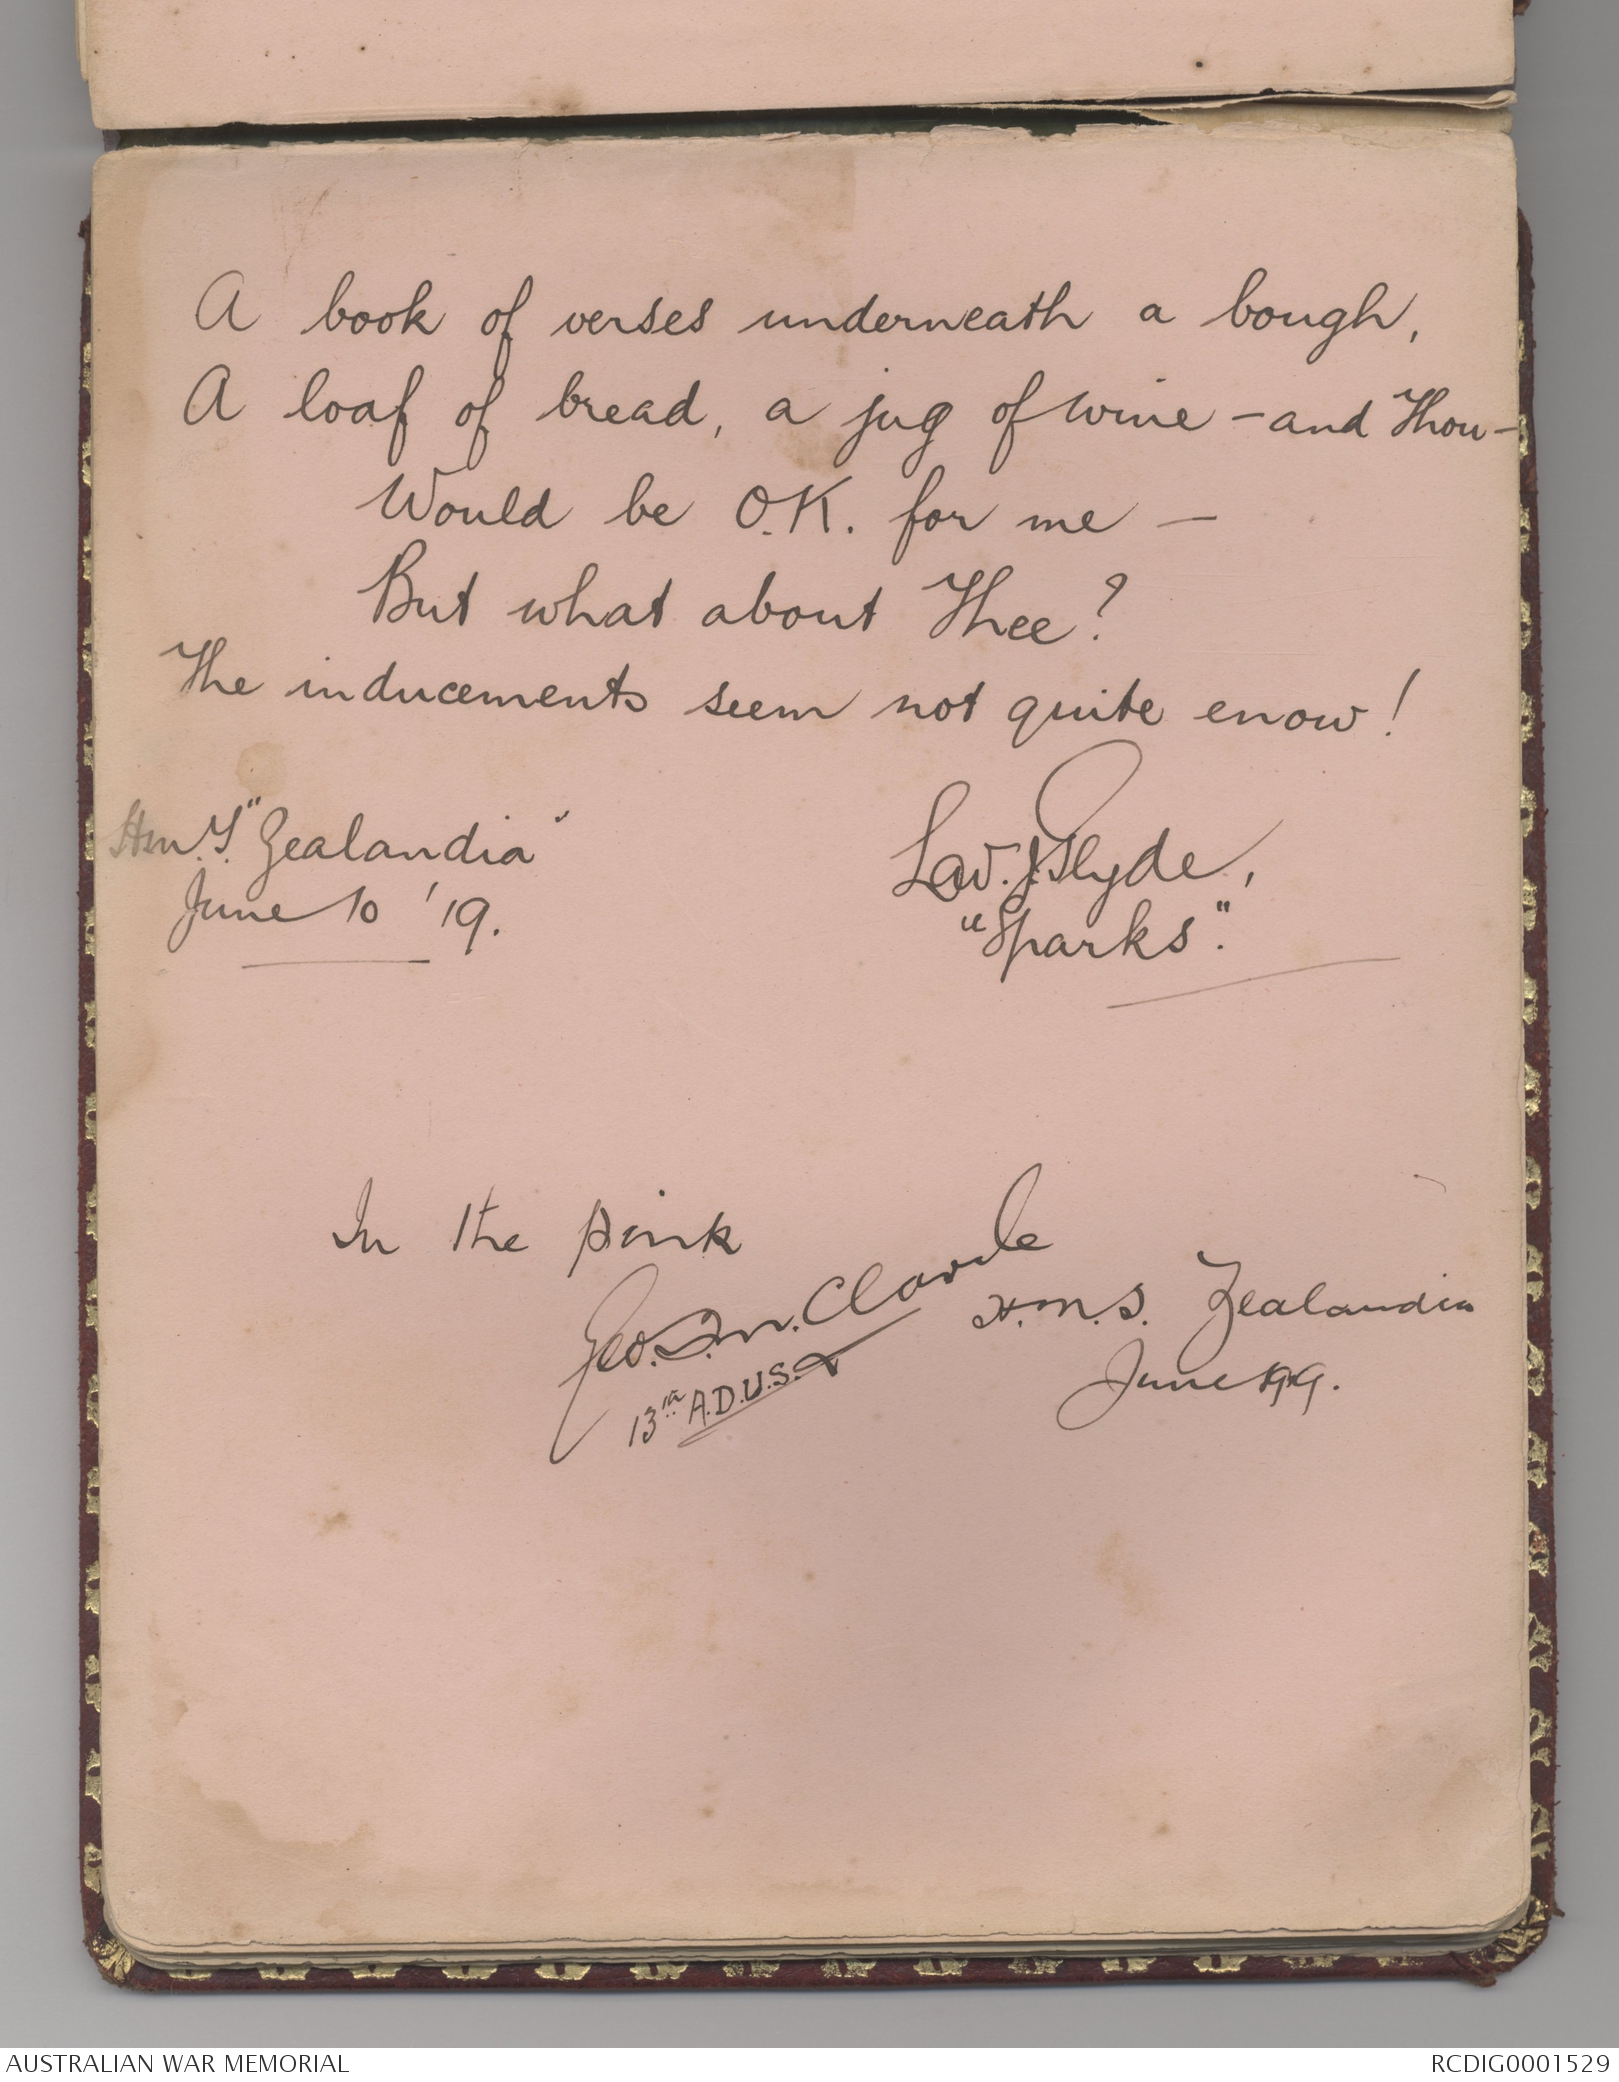 A book of verses underneath a bough,
A loaf of bread, a jug of wine – and Thou –
Would be O.K. for me –
But what about Thee?
The inducements seem not quite enow!
"Zealandia"
June 10 '19.
"Sparks".
In the pink
Geo.
13th A.D.U.S.
H.M.S. Zealandia
June
AUSTRALIAN WAR MEMORIAL
RCDIG0001529